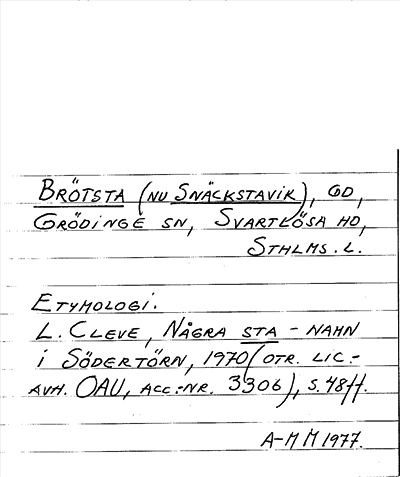 BRÖTSTA (NU SNÄCKSTAVIK), GD,
GRÖDINGE SN, SVARTLÖSA HD,
STHLMS. L.
ETYMOLOGI.
L. CLEVE, NÅGRA STA-NAMN
I SÖDERTÖRN, 1970 (OTR. LIC.-
AVH. OAU, ACC.-NR. 3306), S. 48 ff.
A-M M 1977.